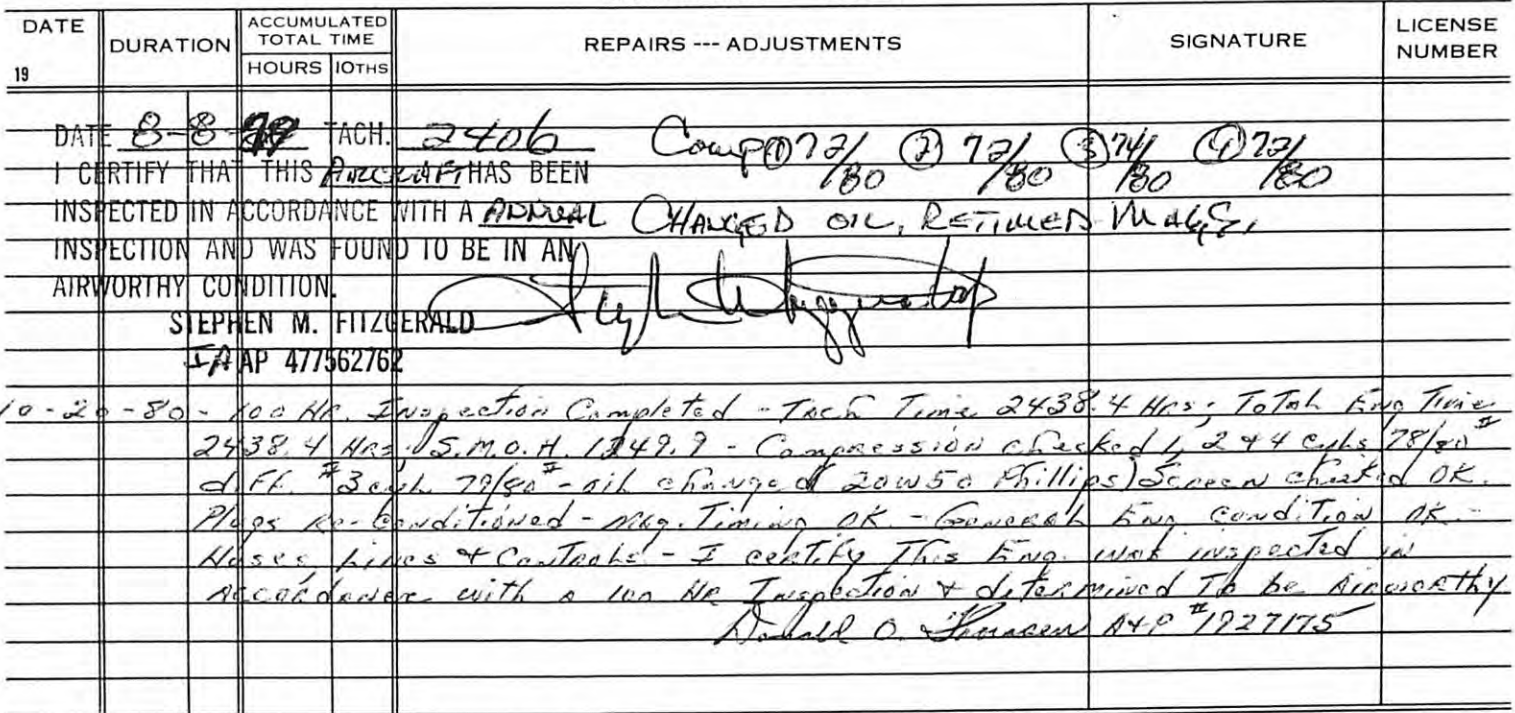 DATE DURATION ACCUMULATED TOTAL TIME REPAIRS --- ADJUSTMENTS SIGNATURE LICENSE NUMBER
19 HOURS 10THS
DATE 8-8- TACH. 2406 Comp ① 72/80 ② 72/80 ③ 74/80 ④ 72/80
I CERTIFY THAT THIS AIRCRAFT HAS BEEN
INSPECTED IN ACCORDANCE WITH A ANNUAL CHANGED OIL, RETIMED MAGS,
INSPECTION AND WAS FOUND TO BE IN AN
AIRWORTHY CONDITION.
STEPHEN M. FITZGERALD
IA AP 477562762
10-20-80 - 100 HR. Inspection Completed - Tach Time 2438.4 Hrs; Total Eng Time
2438.4 Hrs, S.M.O.H. 1249.9 - Compression checked 1, 2 & 4 cyls 78/80#
diff. #3 cyl. 79/80# - oil changed 20W50 Phillips) Screen checked OK.
Plugs Re-Conditioned - Mag. Timing OK. - General Eng condition OK -
Hoses, Lines & Controls - I certify This Eng. was inspected in
accordance with a 100 HR Inspection & determined To be Airworthy
Donald O. A&P #1927175